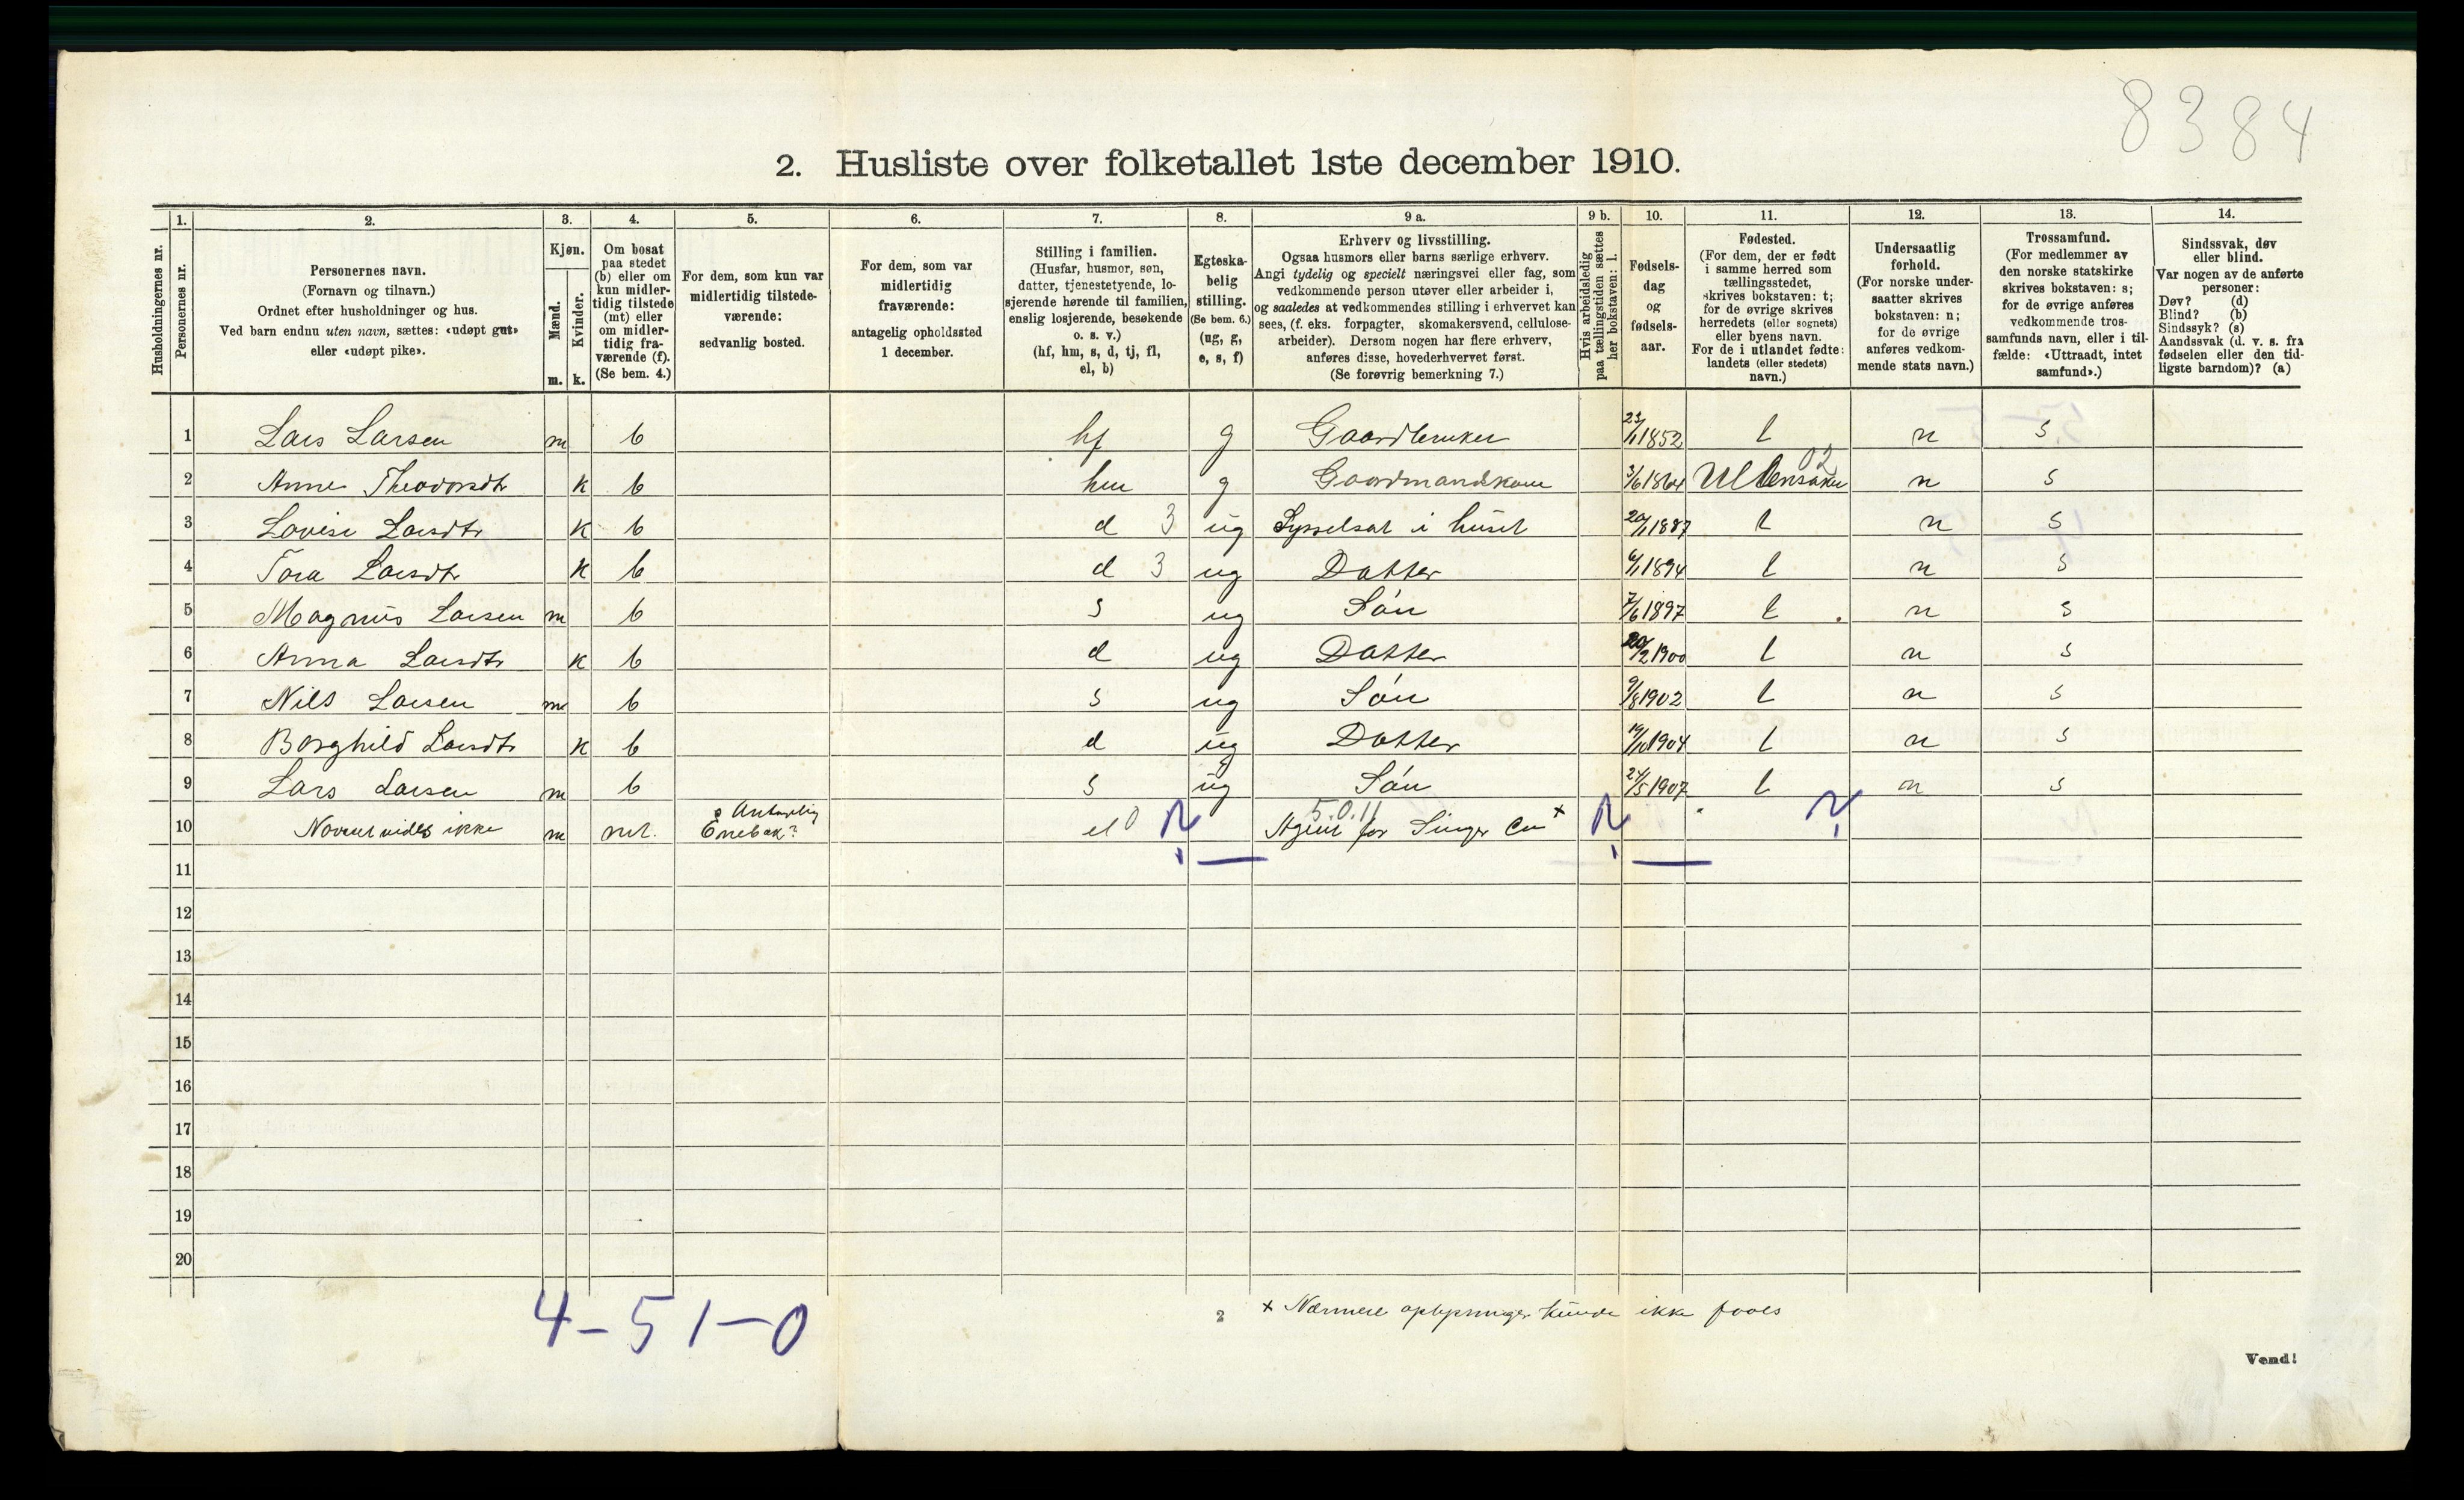 8384
2. Husliste over folketallet 1ste december 1910.
Husholdningernes nr.
1. Personernes nr.
2. Personernes navn.
(Fornavn og tilnavn.)
Ordnet efter husholdninger og hus.
Ved barn endnu uten navn, sættes: «udøpt gut»
eller «udøpt pike».
3. Kjøn.
Mænd. m.
Kvinder. k.
4. Om bosat
paa stedet
(b) eller om
kun midler-
tidig tilstede
(mt) eller
om midler-
tidig fra-
værende (f).
(Se bem. 4.)
5. For dem, som kun var
midlertidig tilstede-
værende:
sedvanlig bosted.
6. For dem, som var
midlertidig
fraværende:
antagelig opholdssted
1 december.
7. Stilling i familien.
(Husfar, husmor, søn,
datter, tjenestetyende, lo-
sjerende hørende til familien,
enslig losjerende, besøkende
o. s. v.)
(hf, hm, s, d, tj, fl,
el, b)
8. Egteska-
belig
stilling.
(Se bem. 6.)
(ug, g,
e, s, f)
9 a. Erhverv og livsstilling.
Ogsaa husmors eller barns særlige erhverv.
Angi tydelig og specielt næringsvei eller fag, som
vedkommende person utøver eller arbeider i,
og saaledes at vedkommendes stilling i erhvervet kan
sees, (f. eks. forpagter, skomakersvend, cellulose-
arbeider). Dersom nogen har flere erhverv,
anføres disse, hovederhvervet først.
(Se forøvrig bemerkning 7.)
9 b. Hvis arbeidsledig
paa tællingstiden sættes
her bokstaven: l.
10. Fødsels-
dag
og
fødsels-
aar.
11. Fødested.
(For dem, der er født
i samme herred som
tællingsstedet,
skrives bokstaven: t;
for de øvrige skrives
herredets (eller sognets)
eller byens navn.
For de i utlandet fødte:
landets (eller stedets)
navn.)
12. Undersaatlig
forhold.
(For norske under-
saatter skrives
bokstaven: n;
for de øvrige
anføres vedkom-
mende stats navn.)
13. Trossamfund.
(For medlemmer av
den norske statskirke
skrives bokstaven: s;
for de øvrige anføres
vedkommende tros-
samfunds navn, eller i til-
fælde: «Uttraadt, intet
samfund».)
14. Sindssvak, døv
eller blind.
Var nogen av de anførte
personer:
Døv? (d)
Blind? (b)
Sindssyk? (s)
Aandssvak (d. v. s. fra
fødselen eller den tid-
ligste barndom)? (a)
1 Lars Larsen m b hf g Gaardbruker 23/11 1852 t n s
2 Anne Theodorsdtr k b hm g Gaardmandskone 3/6 1864 Ullensaker 02 n s
3 Lovise Larsdtr k b d 3 ug Sysselsat i huset 20/1 1887 t n s
4 Tora Larsdtr k b d 3 ug Datter 6/1 1894 t n s
5 Magnus Larsen m b s ug Søn 7/6 1897 t n s
6 Anna Larsdtr k b d ug Datter 20/2 1900 t n s
7 Nils Larsen m b s ug Søn 9/8 1902 t n s
8 Borghild Larsdtr k b d ug Datter 19/10 1904 t n s
9 Lars Larsen m b s ug Søn 24/5 1907 t n s
10 Navnet vides ikke m mt. Antagelig Enebak? el 0 5.0.11 Agent for Singer Co x
11
12
13
14
15
16
17
18
19
20
4-51-0
2
x Nærmere oplysninger kunde ikke faaes
Vend!